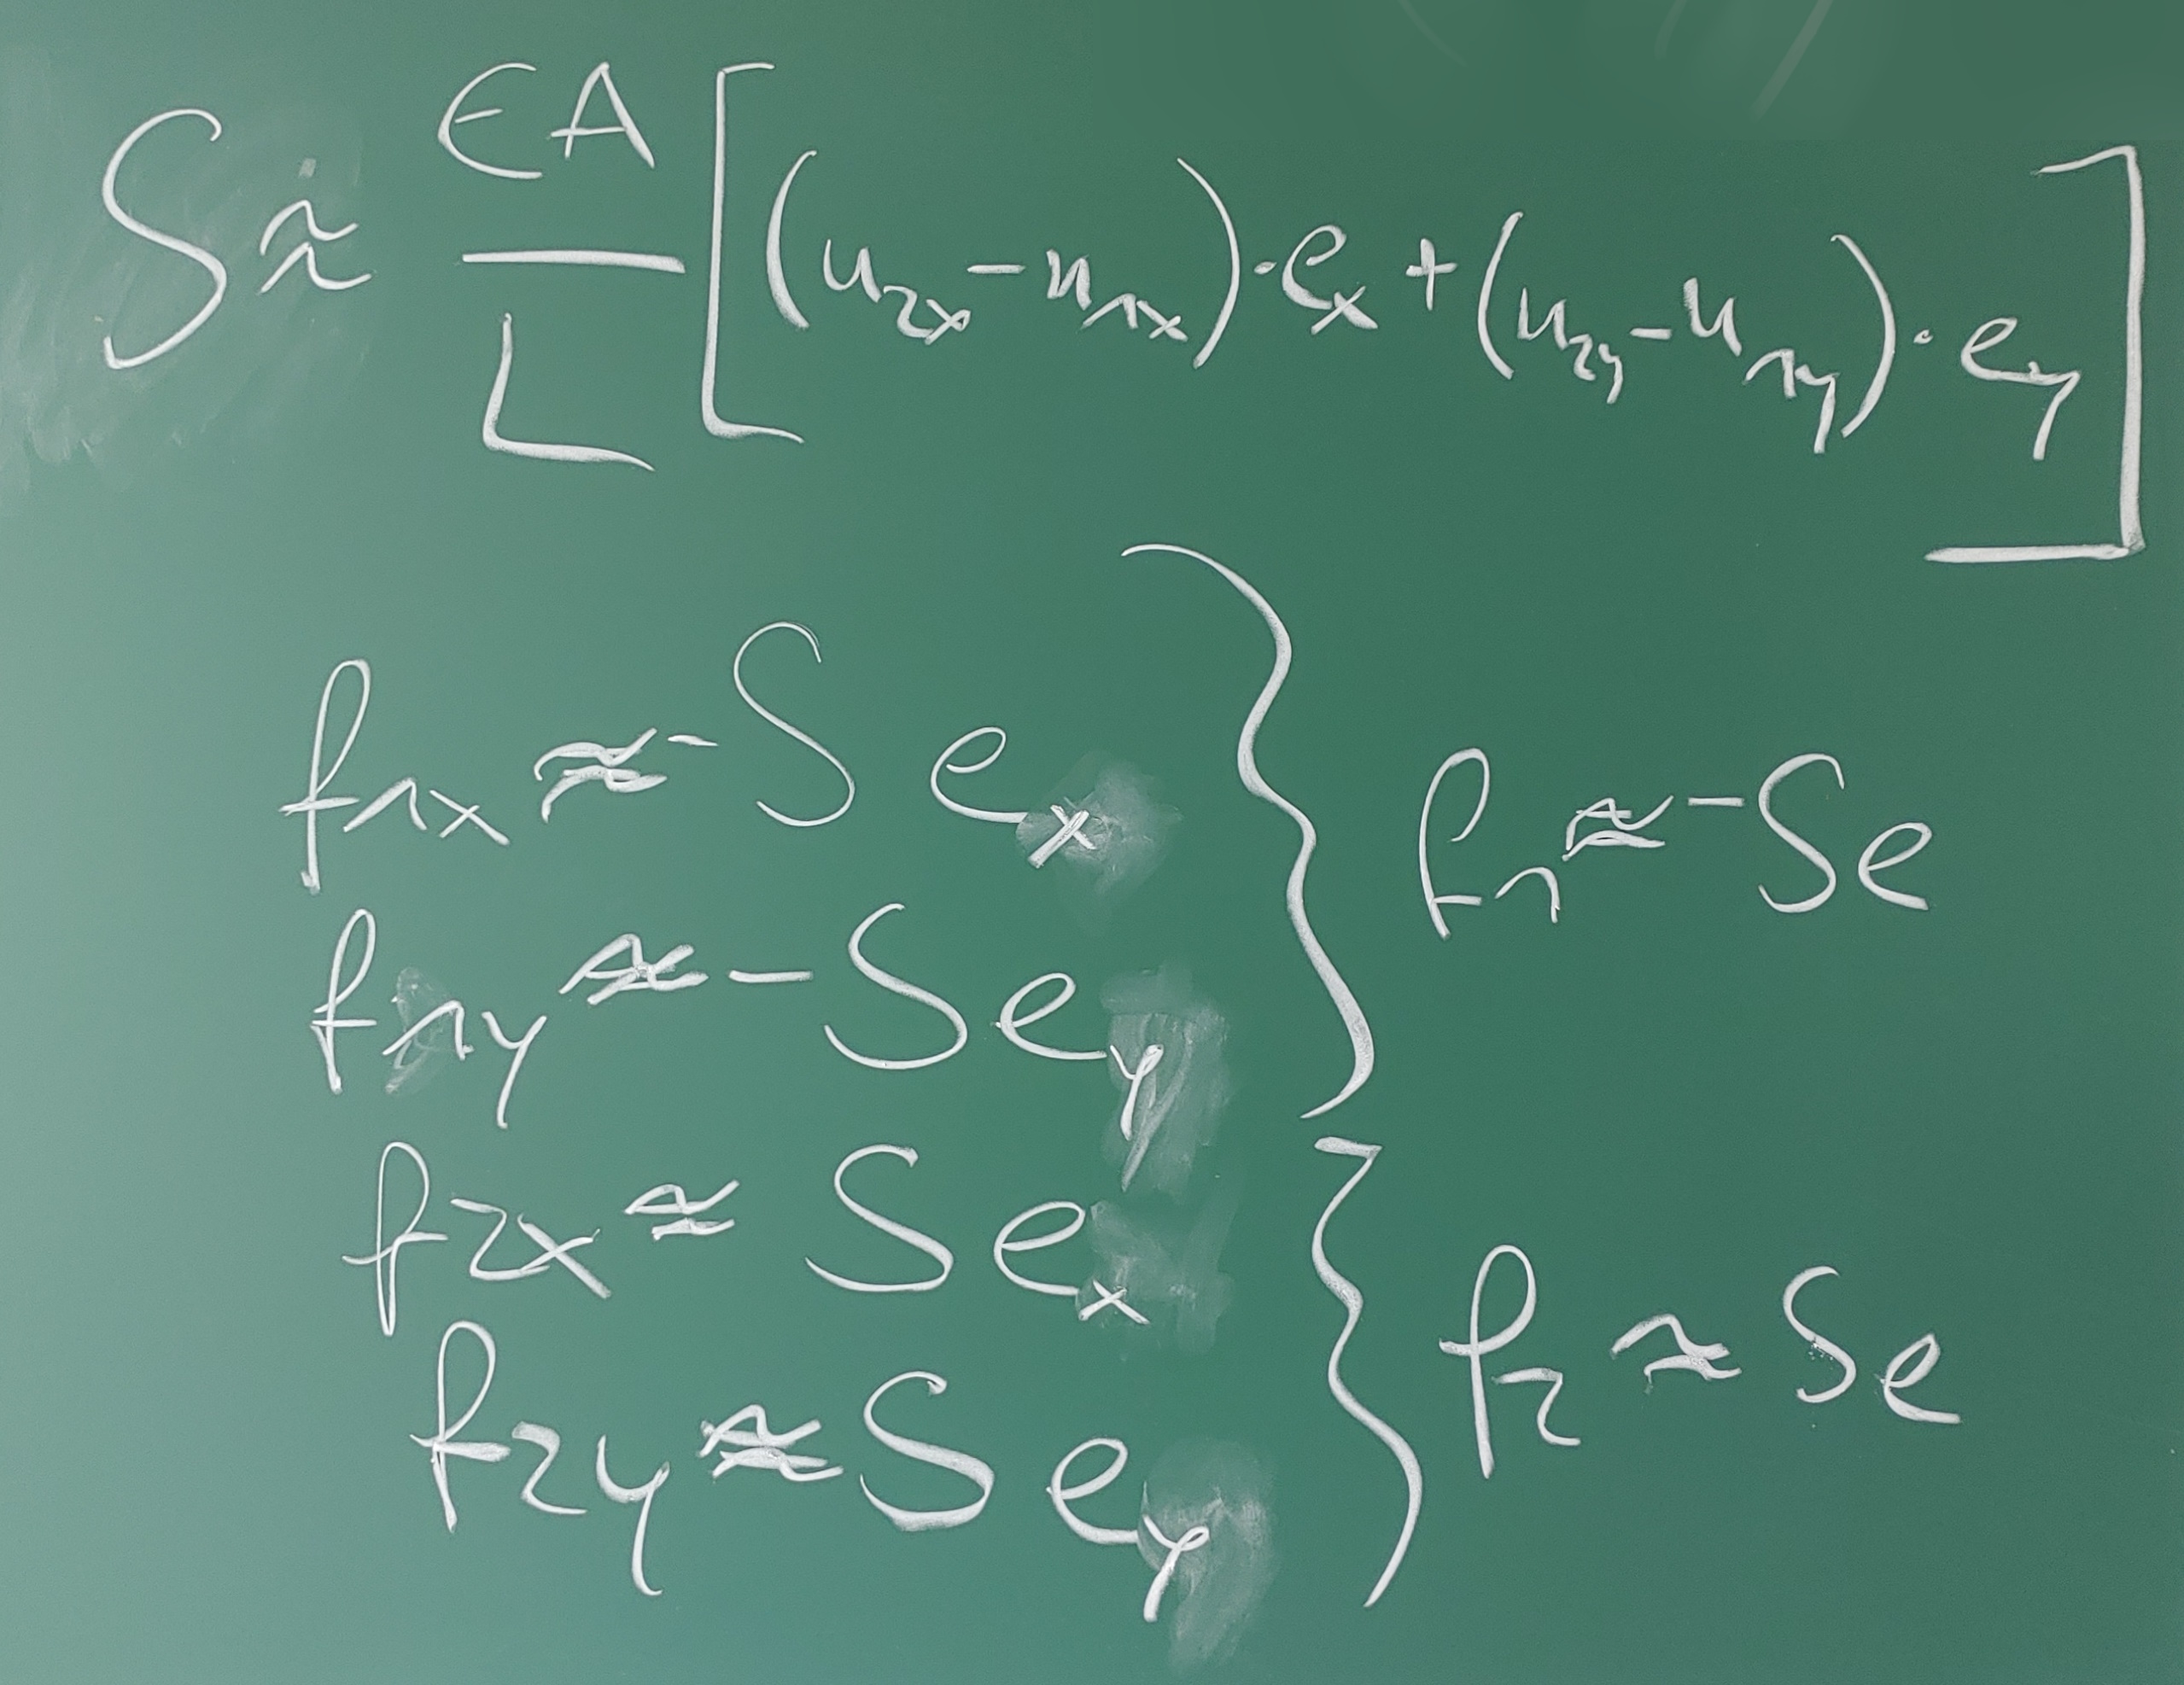 S ≈ EA/L [(u₂ₓ - u₁ₓ) · eₓ + (u₂y - u₁y) · ey]
f₁ₓ ≈ - S eₓ
f₁y ≈ - S ey
} f₁ ≈ - Se
f₂ₓ ≈ S eₓ
f₂y ≈ S ey
} f₂ ≈ Se